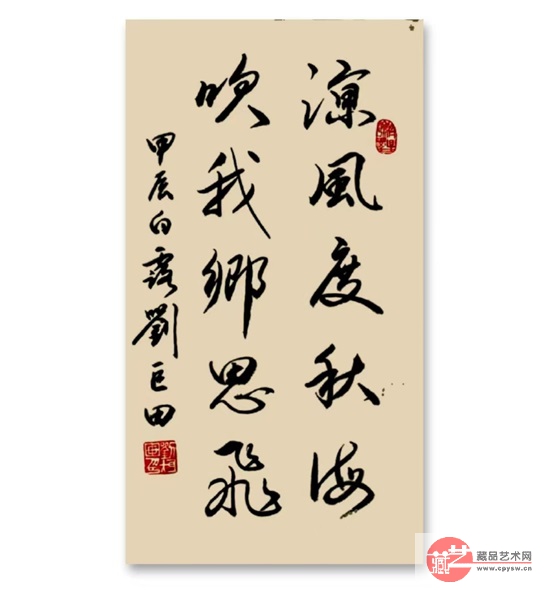 涼風度秋海
吹我鄉思飛
甲辰白露劉巨田
藏艺
藏品艺术网
www.cpysw.cn